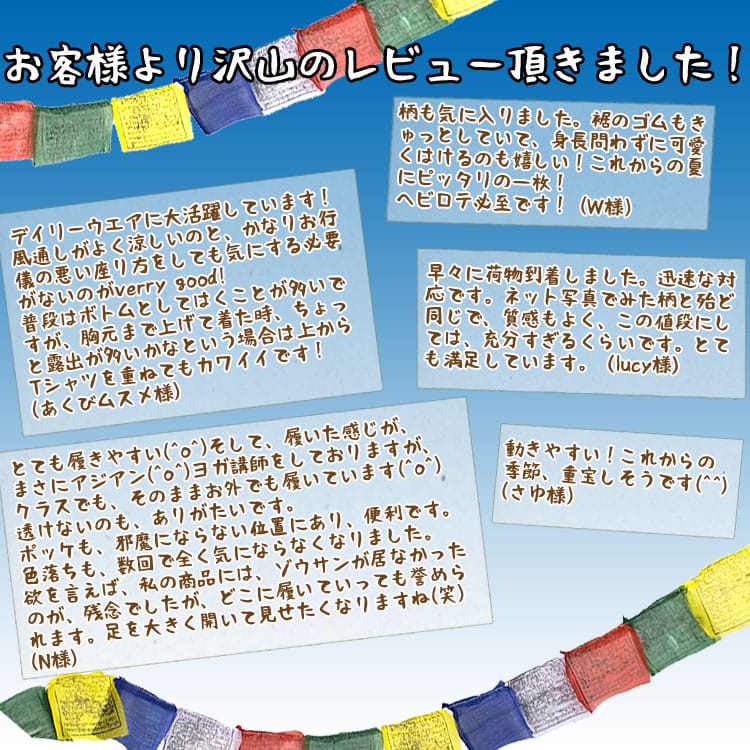 お客様より沢山のレビュー頂きました！
柄も気に入りました。裾のゴムもき
ゅっとしていて、身長問わずに可愛
くはけるのも嬉しい！これからの夏
にピッタリの一枚！
ヘビロテ必至です！ (W様)
デイリーウエアに大活躍しています！
風通しがよく涼しいのと、かなりお行
儀の悪い座り方をしても気にする必要
がないのがverry good!
普段はボトムとしてはくことが多いで
すが、胸元まで上げて着た時、ちょっ
と露出が多いかなという場合は上から
Tシャツを重ねてもカワイイです！
(あくびムスメ様)
早々に荷物到着しました。迅速な対
応です。ネット写真でみた柄と殆ど
同じで、質感もよく、この値段にし
ては、充分すぎるくらいです。とて
も満足しています。 (lucy様)
とても履きやすい(^o^)そして、履いた感じが、
まさにアジアン(^o^)ヨガ講師をしておりますが、
クラスでも、そのままお外でも履いています(^o^)
透けないのも、ありがたいです。
ポッケも、邪魔にならない位置にあり、便利です。
色落ちも、数回で全く気にならなくなりました。
欲を言えば、私の商品には、ゾウサンが居なかった
のが、残念でしたが、どこに履いていっても誉めら
れます。足を大きく開いて見せたくなりますね(笑)
(N様)
動きやすい！これからの
季節、重宝しそうです(^^)
(さゆ様)